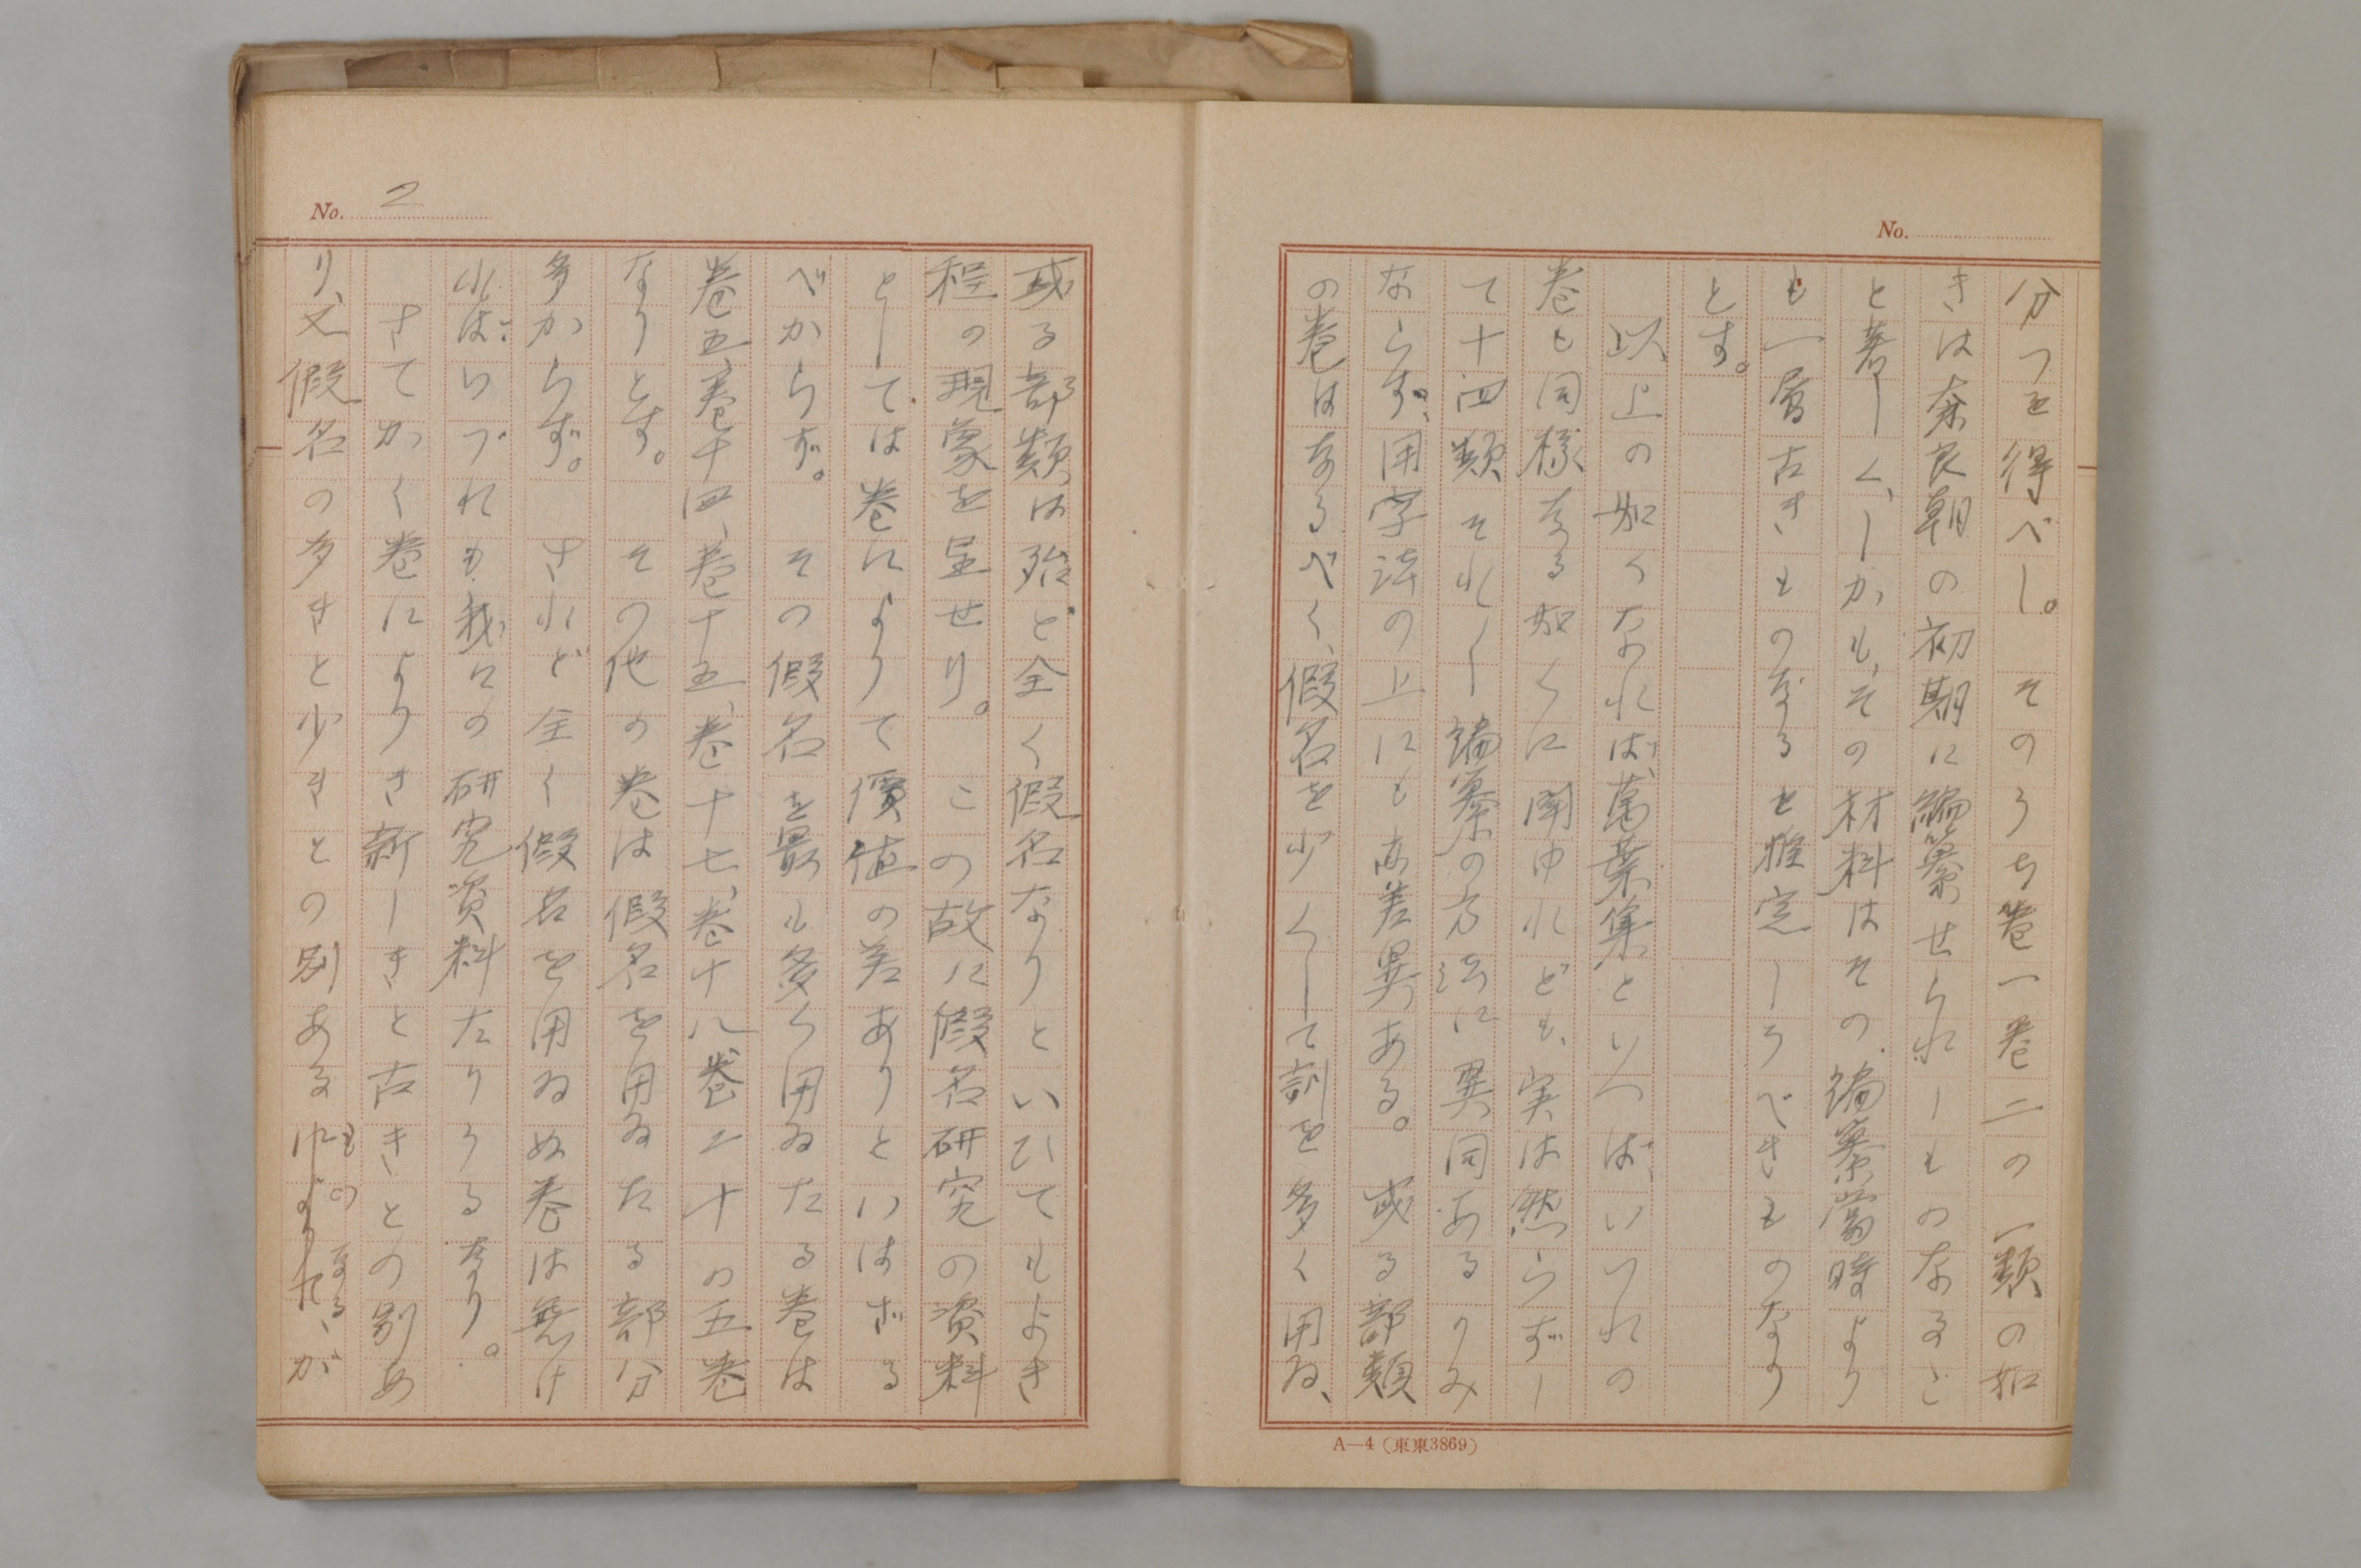 No.
分つを得べし。そのうち卷一卷二の一類の如
きは奈良朝の初期に編纂せられしものなるこ
と著しく、しかも、その材料はその編纂當時より
も一層古きものなるを推定しうべきものなり
とす。
以上の如くなれば、萬葉集といへばいづれの
卷も同樣なる如くに聞ゆれども、実は然らずし
て十四類それ〱編纂の方法に異同あるのみ
ならず、用字法の上にも亦差異ある。或る部類
の卷はなるべく、假名を少くして訓を多く用ゐ、
A—4(東東3869)
No. 2
或る部類は殆ど全く假名なりといひてもよき
程の現象を呈せり。この故に假名研究の資料
としては卷によりて價値の差ありといはざる
べからず。その假名を最も多く用ゐたる卷は
卷五、卷十四、卷十五、卷十七、卷十八、卷二十の五卷
なりとす。その他の卷は假名を用ゐたる部分
多からず。されど全く假名を用ゐぬ卷は無け
ればいづれも我々の研究資料たりうるなり。
さてかく卷によりさ新しきと古きとの別あ
り、又假名の多きと少きとの別あるものなるが